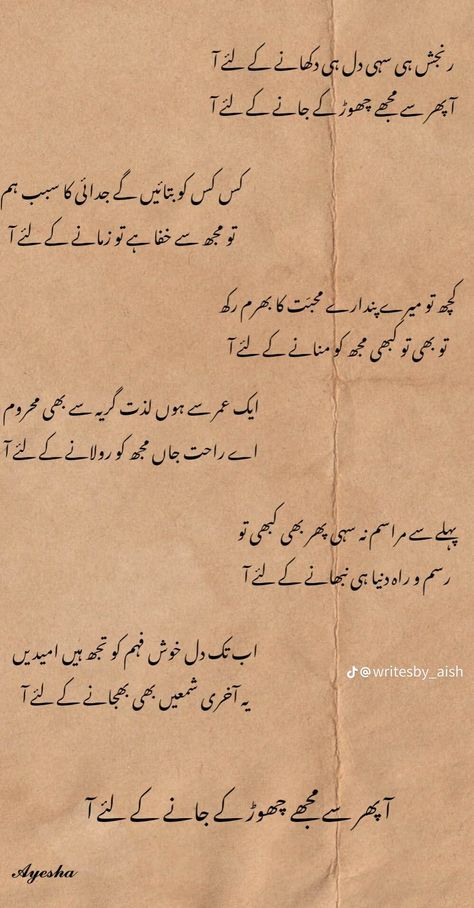 رنجش ہی سہی دل ہی دکھانے کے لئے آ
آ پھر سے مجھے چھوڑ کے جانے کے لئے آ
کس کس کو بتائیں گے جدائی کا سبب ہم
تو مجھ سے خفا ہے تو زمانے کے لئے آ
کچھ تو میرے پندارے محبت کا بھرم رکھ
تو بھی تو کبھی مجھ کو منانے کے لئے آ
ایک عمر سے ہوں لذت گریہ سے بھی محروم
اے راحت جاں مجھ کو رولانے کے لئے آ
پہلے سے مراسم نہ سہی پھر بھی کبھی تو
رسم و راہ دنیا ہی نبھانے کے لئے آ
اب تک دل خوش فہم کو تجھ ہیں امیدیں
یہ آخری شمعیں بھی بھجانے کے لئے آ
@writesby_aish
آ پھر سے مجھے چھوڑ کے جانے کے لئے آ
Ayesha